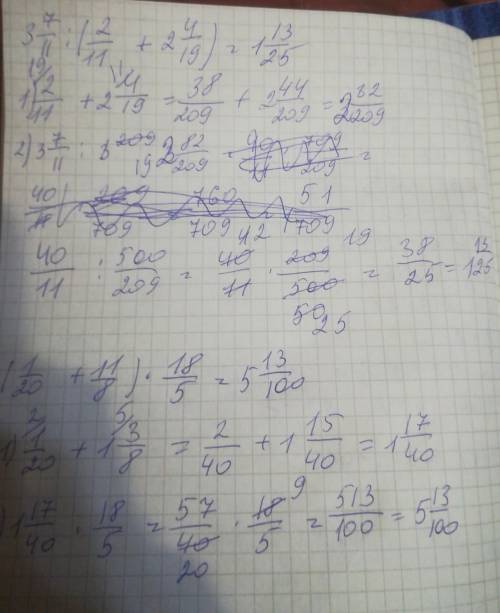 3 7/11 : (2/11 + 2 4/19) = 1 13/25
1) 2/11 + 2 4/19 = 38/209 + 2 44/209 = 2 82/209
2) 3 7/11 : 2 82/209 =
40/11 : 500/209 = 40/11 · 209/500 = 38/25 = 1 13/25
(1/20 + 11/8) · 18/5 = 5 13/100
1) 1/20 + 1 3/8 = 2/40 + 1 15/40 = 1 17/40
1 17/40 · 18/5 = 57/40 · 18/5 = 513/100 = 5 13/100